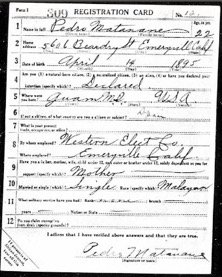 Form 1
309 REGISTRATION CARD No. 12
1 Name in full Pedro Matanane 22
2 Home address 5606 Beaudry St Emeryville Calf
3 Date of birth April 14 1895
4 Are you (1) a natural-born citizen, (2) a naturalized citizen, (3) an alien, (4) or have you declared your intention (specify which)? Declared
5 Where were you born? Guam
6 If not a citizen, of what country are you a citizen or subject?
7 What is your present trade, occupation, or office?
8 By whom employed? Western Elect Co.
Where employed? Emeryville Calf.
9 Have you a father, mother, wife, child under 12, or a sister or brother under 12, solely dependent on you for support (specify which)? Mother
10 Married or single (which)? Single Race (specify which)? Malayan
11 What military service have you had? Rank branch
years Nation or State
12 Do you claim exemption from draft (specify grounds)?
I affirm that I have verified above answers and that they are true.
Pedro Matanane